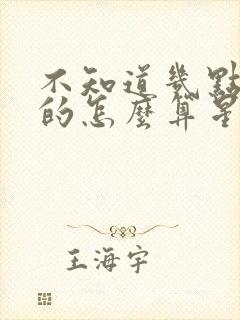 不知道幾點
的怎麼算星
王海宇